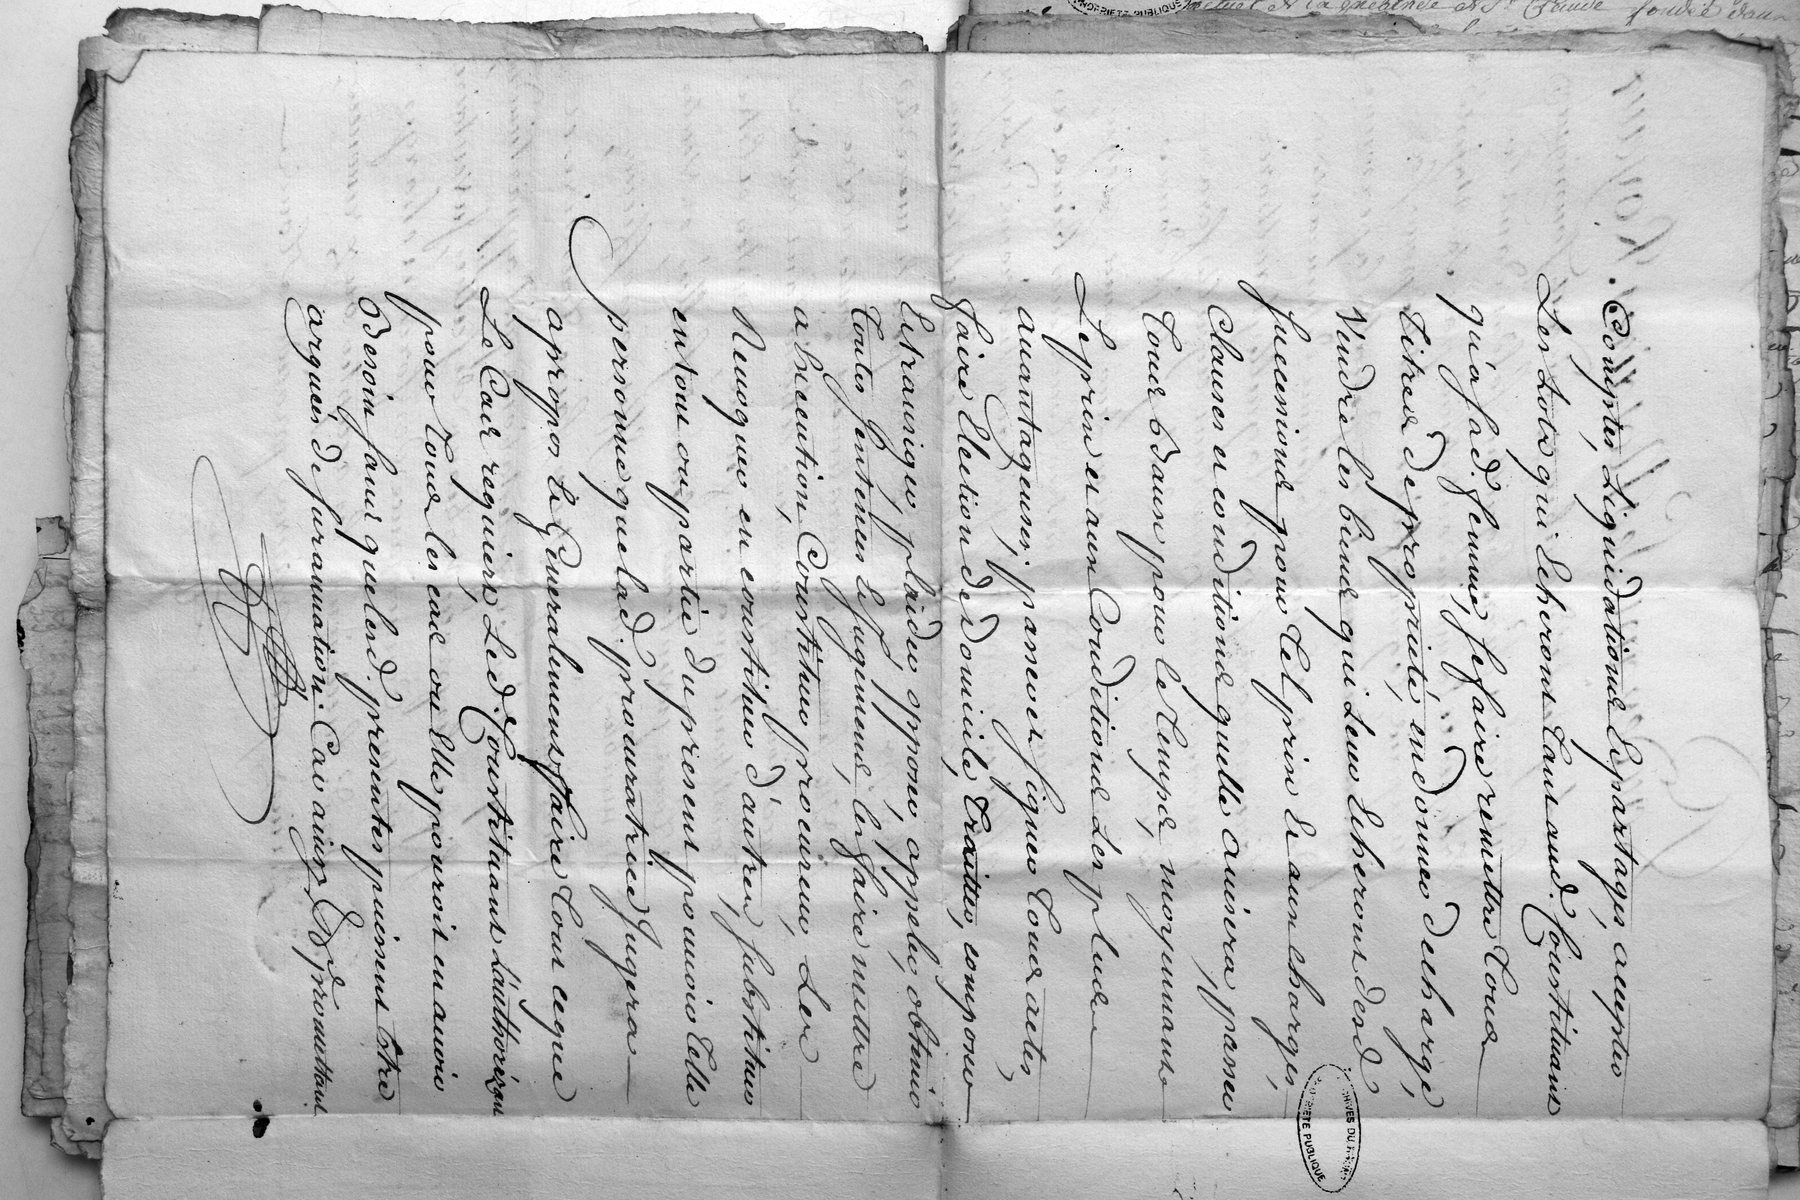 Comptes, Liquidations Et partages, accepter
Les Lots qui Echeront Tant aud. Constituant
qu'a sad. femme, se faire remettre Tous
Titres de propriété, en donner décharge,
Vendre les biens qui Leur Echeront desd.
successions pour Tel prix & aux charges,
Clauses et conditions quelle avisera, passer
Tous Baux pour le Temps, moyennant
Le prix et aux Conditions Les plus
avantageuses, passer et signer Tous actes,
faire Election de domicile, Traitter, composer
Et transiger, plaider, opposer, appeler, obtenir
Toutes Sentences & Jugemens, les faire mettre
a Execution, Constituer procureur, Les
Revoquer en constituer d'autres, substituer
en tout ou partie du present pouvoir Telle
personne que lad. procuratrice Jugera
apropos & Generalement faire Tout ceque
Le Cas requiers, Led. Constituant L'authorizant
pour Tous les cas ou Elle pourroit en avoir
Besoin sans que lesd. presentes puissent Etre
arguées de surannation. Car ainsy & promettant
ARCHIVES DU
PROPRIETE PUBLIQUE
PROPRIETE PUBLIQUE